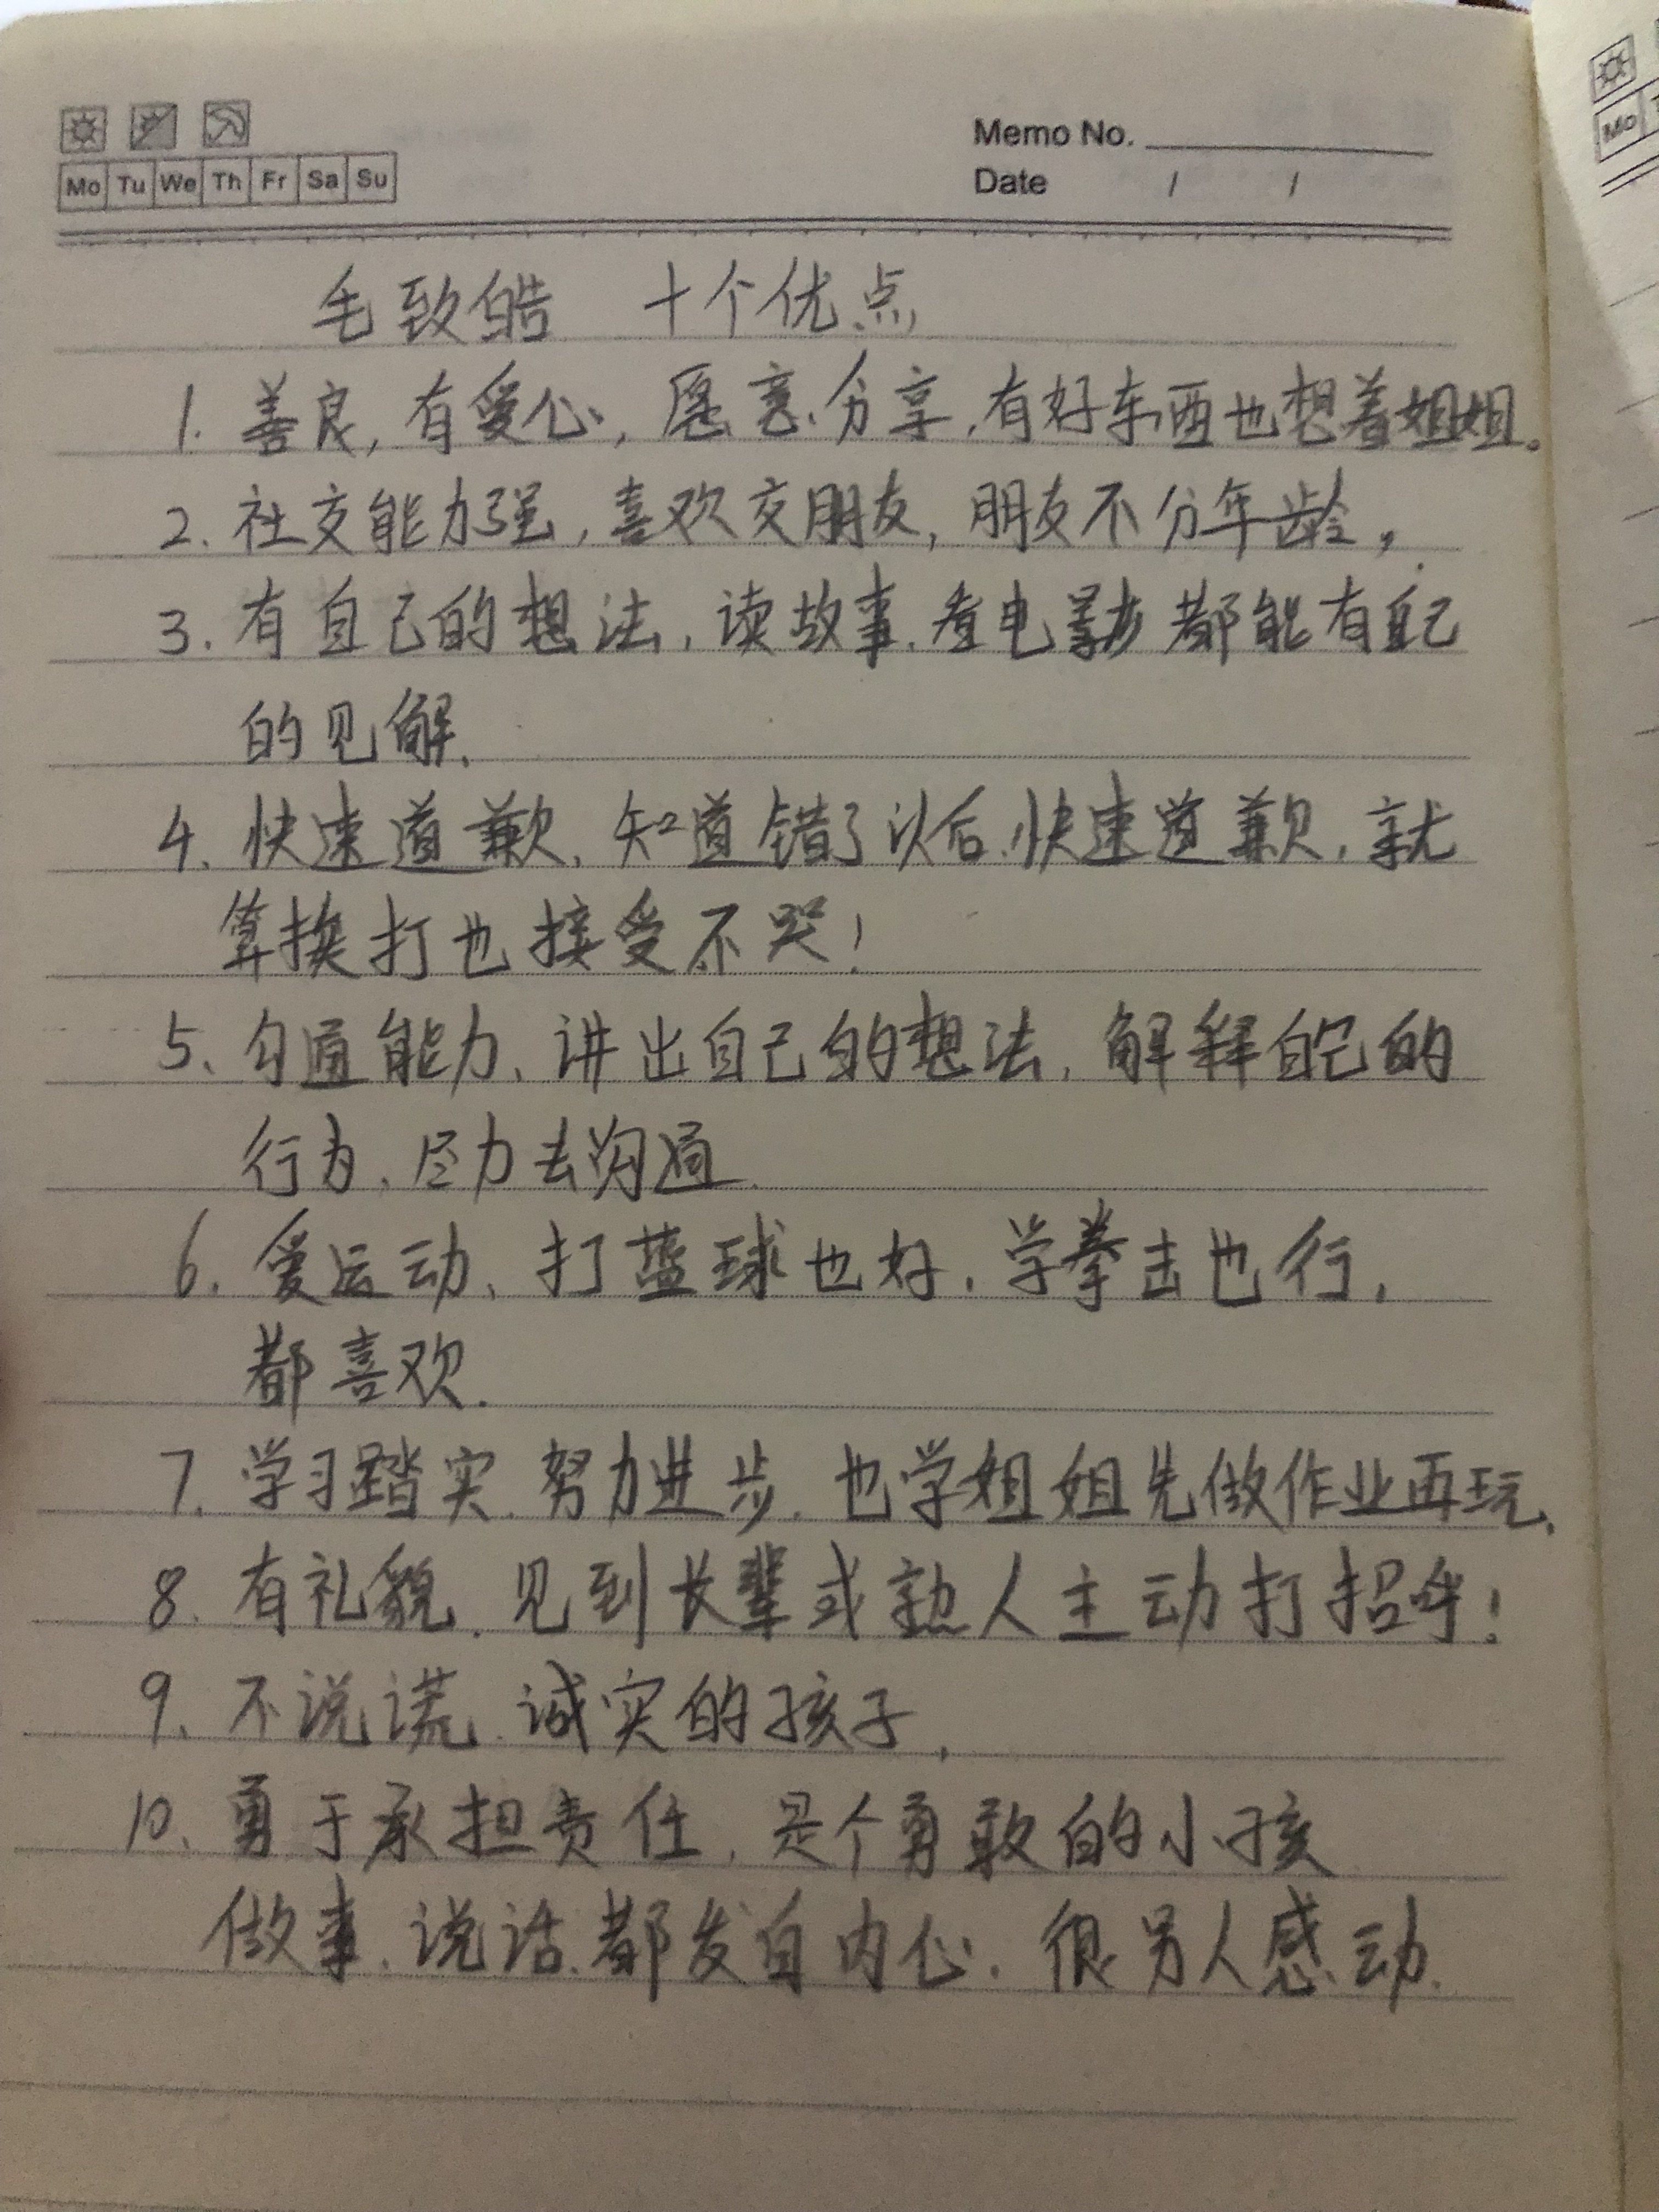 Mo Tu We Th Fr Sa Su
Memo No.
Date / /
毛致皓 十个优点
1. 善良,有爱心,愿意分享,有好东西也想着姐姐。
2. 社交能力强,喜欢交朋友,朋友不分年龄,
3. 有自己的想法,读故事,看电影都能有自己
的见解.
4. 快速道歉,知道错了以后,快速道歉,就
算挨打也接受不哭!
5、勾通能力、讲出自己的想法,解释自己的
行为,尽力去沟通.
6. 爱运动、打蓝球也好,学拳击也行,
都喜欢.
7. 学习踏实.努力进步.也学姐姐先做作业再玩、
8. 有礼貌.见到长辈或熟人主动打招呼!
9. 不说谎.诚实的孩子.
10. 勇于承担责任,是个勇敢的小孩
做事、说话、都发自内心.很另人感动.
Mo